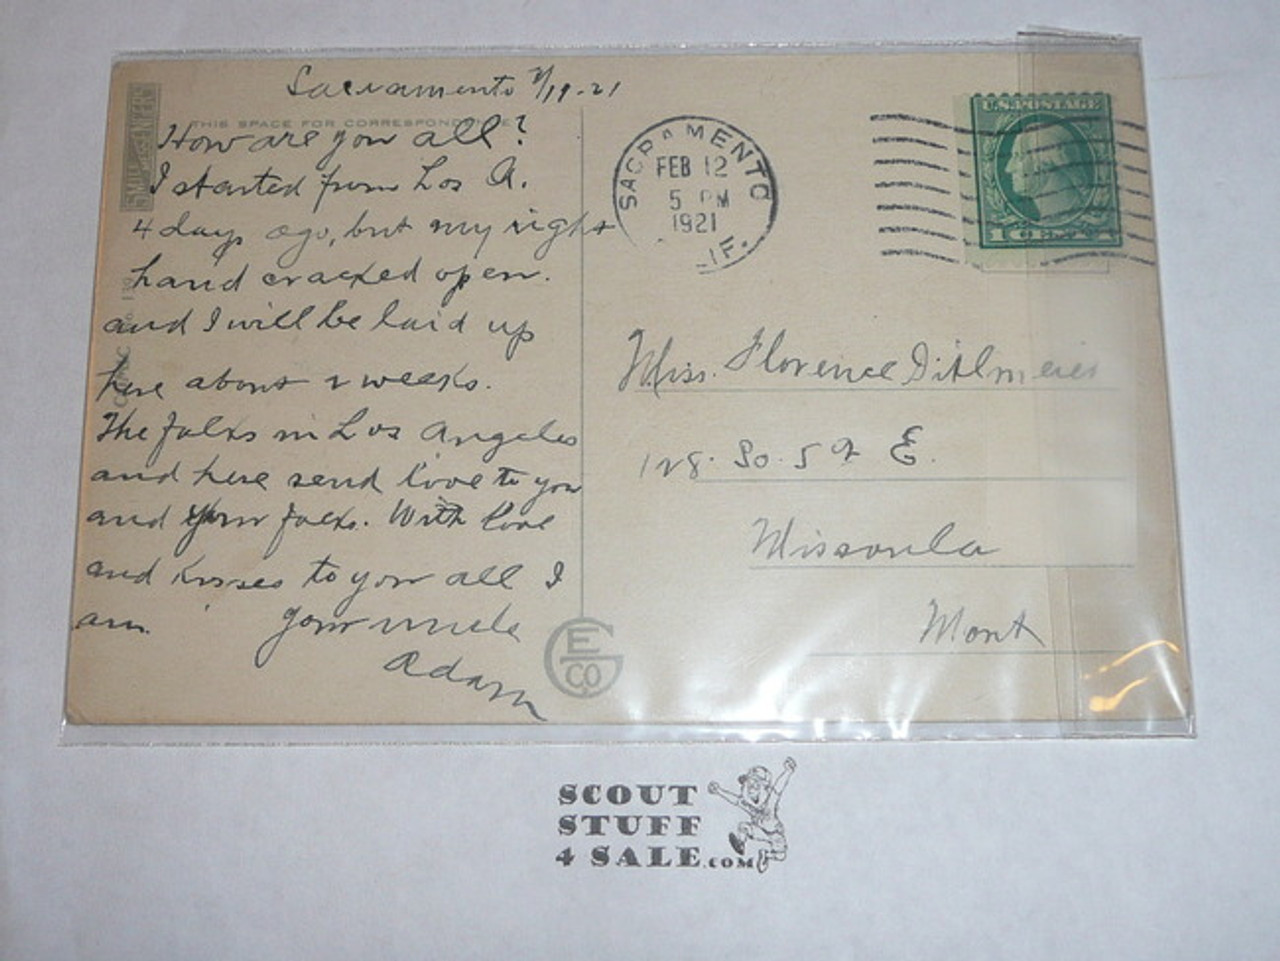 Sacramento 2/19-21
THIS SPACE FOR CORRESPONDENCE
How are you all?
I started from Los A.
4 days ago, but my right
hand cracked open.
and I will be laid up
here about 2 weeks.
The folks in Los Angeles
and here send love to you
and your folks. With love
and kisses to you all I
am. Your uncle
Adam
SACRAMENTO
FEB 12
5 PM
1921
IF.
U.S. POSTAGE
1 CENT 1
Miss. Florence Ditlmeier
128. So. 5th E.
Missoula
Mont
E
G CO
SCOUT
STUFF
4 SALE.COM